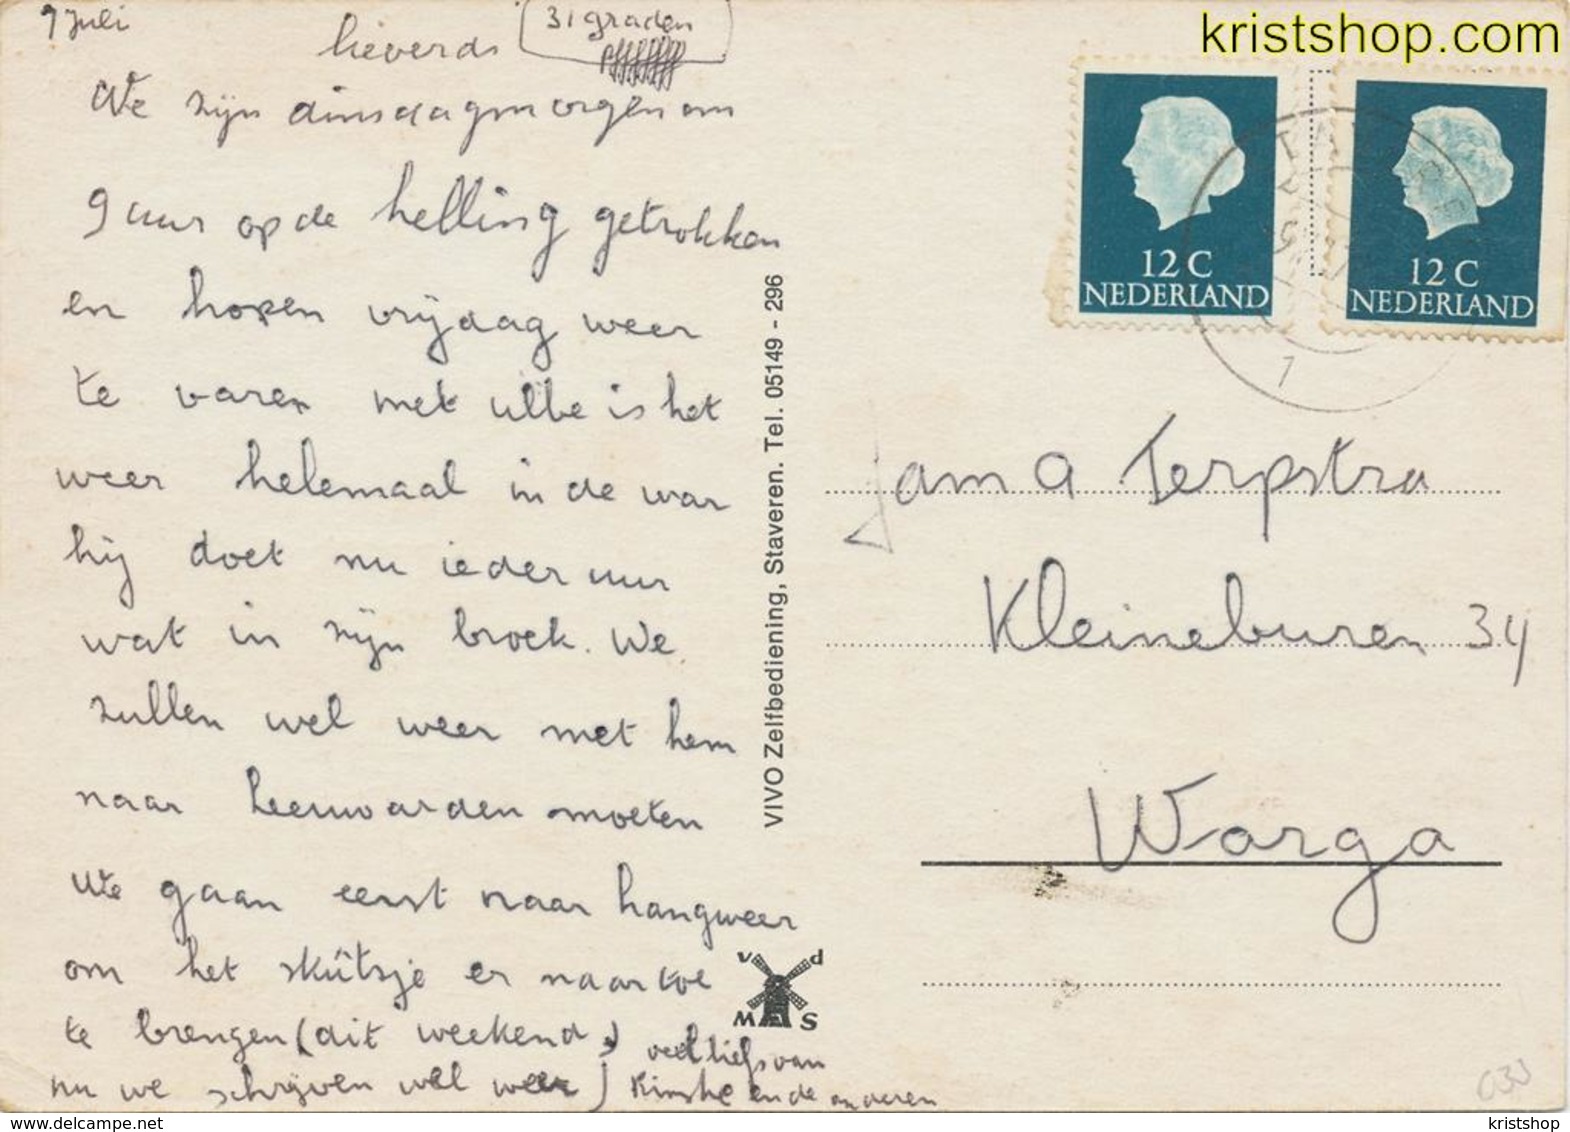 9 Juli
31 graden
lieverds
We zijn dinsdagmorgen om
9 uur op de helling getrokken
en hopen vrijdag weer
te varen met ulbe is het
weer helemaal in de war
hij doet nu ieder uur
wat in zijn broek. We
zullen wel weer met hem
naar leeuwarden moeten
We gaan eerst naar hangweer
om het skûtsje er naar toe
te brengen (dit weekend)
nu we schrijven wel weer
veel liefs van
Kinske en de anderen
VIVO Zelfbediening, Staveren. Tel. 05149 - 296
v d
M S
kristshop.com
12 C
NEDERLAND
12 C
NEDERLAND
Jam a Terpstra
Kleineburen 34
Warga
delcampe.net
kristshop